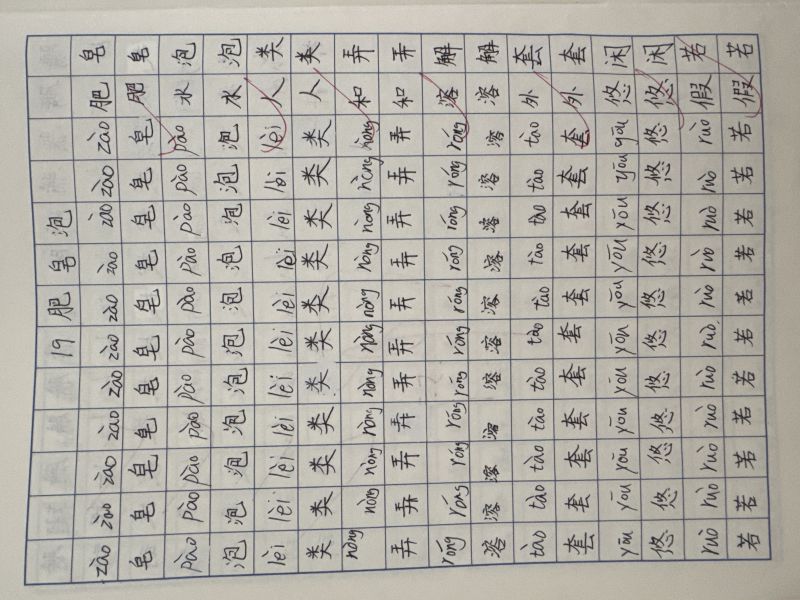 19 肥皂泡
zào zào zào zào zào zào zào zào zào zào zào 肥皂
皂皂皂皂皂皂皂皂皂皂皂肥皂
pào pào pào pào pào pào pào pào pào pào pào 水泡
泡泡泡泡泡泡泡泡泡泡泡水泡
lèi lèi lèi lèi lèi lèi lèi lèi lèi lèi lèi 人类
类类类类类类类类类类类人类
nòng nòng nòng nòng nòng nòng nòng nòng nòng nòng nòng 和弄
弄弄弄弄弄弄弄弄弄弄弄和弄
róng róng róng róng róng róng róng róng róng róng róng 溶解
溶溶溶溶溶溶溶溶溶溶溶溶解
tào tào tào tào tào tào tào tào tào tào tào 外套
套套套套套套套套套套套外套
yōu yōu yōu yōu yōu yōu yōu yōu yōu yōu yōu 悠闲
悠悠悠悠悠悠悠悠悠悠悠悠闲
ruò ruò ruò ruò ruò ruò ruò ruò ruò ruò ruò 假若
若若若若若若若若若若若假若